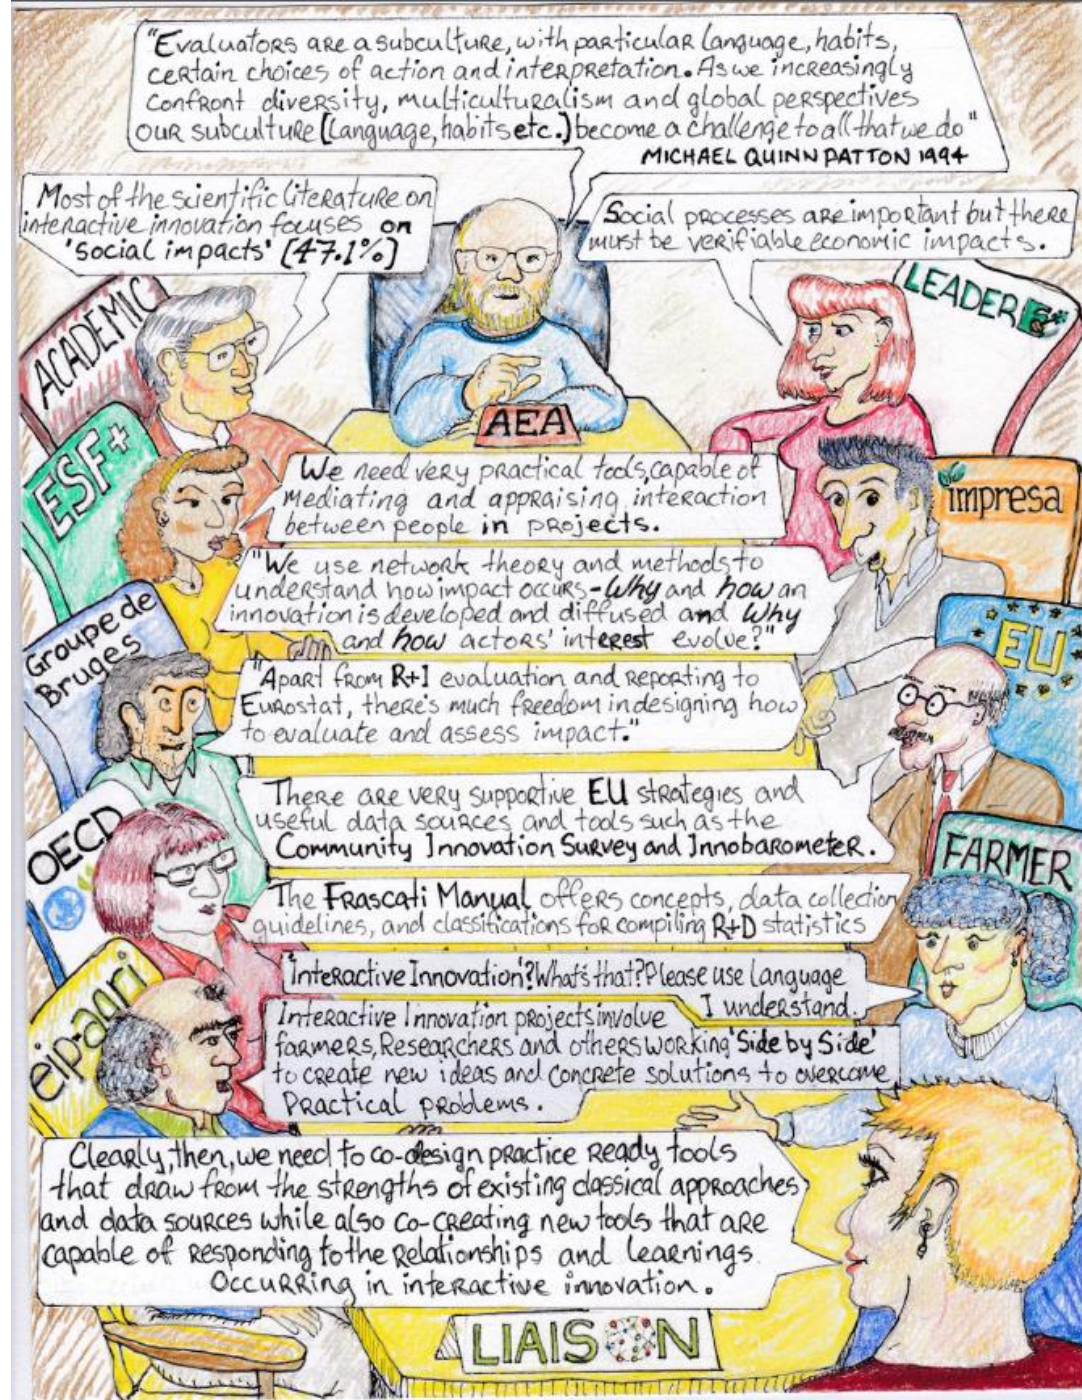 "Evaluators are a subculture, with particular language, habits,
certain choices of action and interpretation. As we increasingly
confront diversity, multiculturalism and global perspectives
our subculture [language, habits etc.] become a challenge to all that we do"
MICHAEL QUINN PATTON 1994
Most of the scientific literature on
interactive innovation focuses on
'social impacts' [47.1%]
Social processes are important but there
must be verifiable economic impacts.
ACADEMIC
LEADER
AEA
ESF+
We need very practical tools, capable of
mediating and appraising interaction
between people in projects.
impresa
"We use network theory and methods to
understand how impact occurs - Why and how an
innovation is developed and diffused and Why
and how actors' interest evolve?"
Groupe de
Bruges
EU
"Apart from R+I evaluation and reporting to
Eurostat, there's much freedom in designing how
to evaluate and assess impact."
OECD
There are very supportive EU strategies and
useful data sources and tools such as the
Community Innovation Survey and Innobarometer.
FARMER
The Frascati Manual offers concepts, data collection
guidelines, and classifications for compiling R+D statistics
eip-agri
'Interactive Innovation'? What's that? Please use language
I understand.
Interactive Innovation projects involve
farmers, Researchers and others working 'Side by Side'
to create new ideas and concrete solutions to overcome
Practical problems.
Clearly, then, we need to co-design practice ready tools
that draw from the strengths of existing classical approaches
and data sources while also co-creating new tools that are
capable of responding to the relationships and learnings
occurring in interactive innovation.
LIAISON